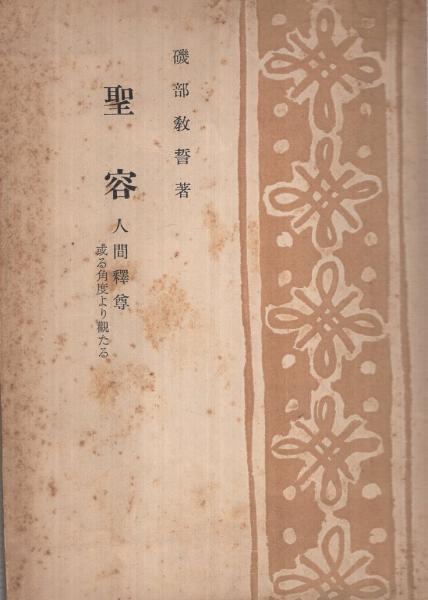 磯部教誓著
聖容 人間釋尊
或る角度より觀たる